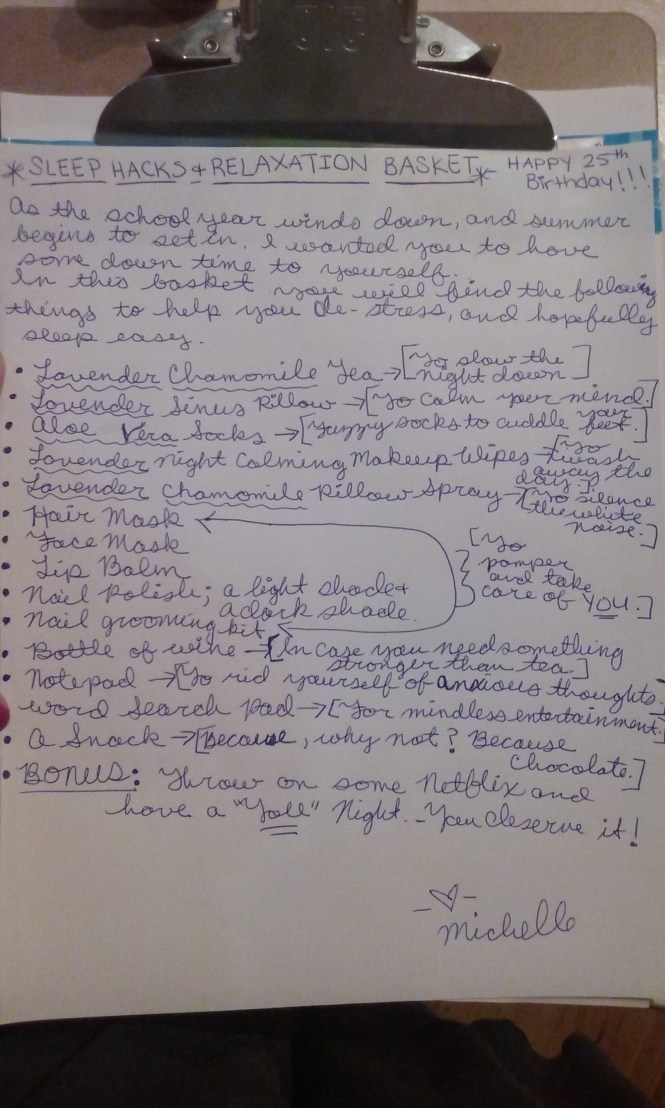 *SLEEP HACKS & RELAXATION BASKET* - HAPPY 25th
Birthday!!!
As the school year winds down, and summer
begins to set in. I wanted you to have
some down time to yourself.
In this basket you will find the following
things to help you de-stress, and hopefully
sleep easy.
• Lavender Chamomile Tea → [To slow the
night down]
• Lavender Sinus Pillow → [To calm your mind.]
• Aloe Vera Socks → [Fuzzy socks to cuddle your
feet.]
• Lavender Night Calming Makeup Wipes → [To
wash
away the
day.]
• Lavender Chamomile Pillow Spray → [To silence
the white
noise.]
• Hair Mask
• Face Mask
• Lip Balm
• Nail Polish; a light shade &
a dark shade.
• Nail grooming kit
[To
pamper
and take
care of YOU.]
• Bottle of wine → [In case you need something
stronger than tea.]
• Notepad → [To rid yourself of anxious thoughts.]
• Word Search Pad → [For mindless entertainment.]
• A Snack → [Because, why not? Because
Chocolate.]
• BONUS: Throw on some Netflix and
have a "You" Night. - You deserve it!
- ♡ -
Michelle